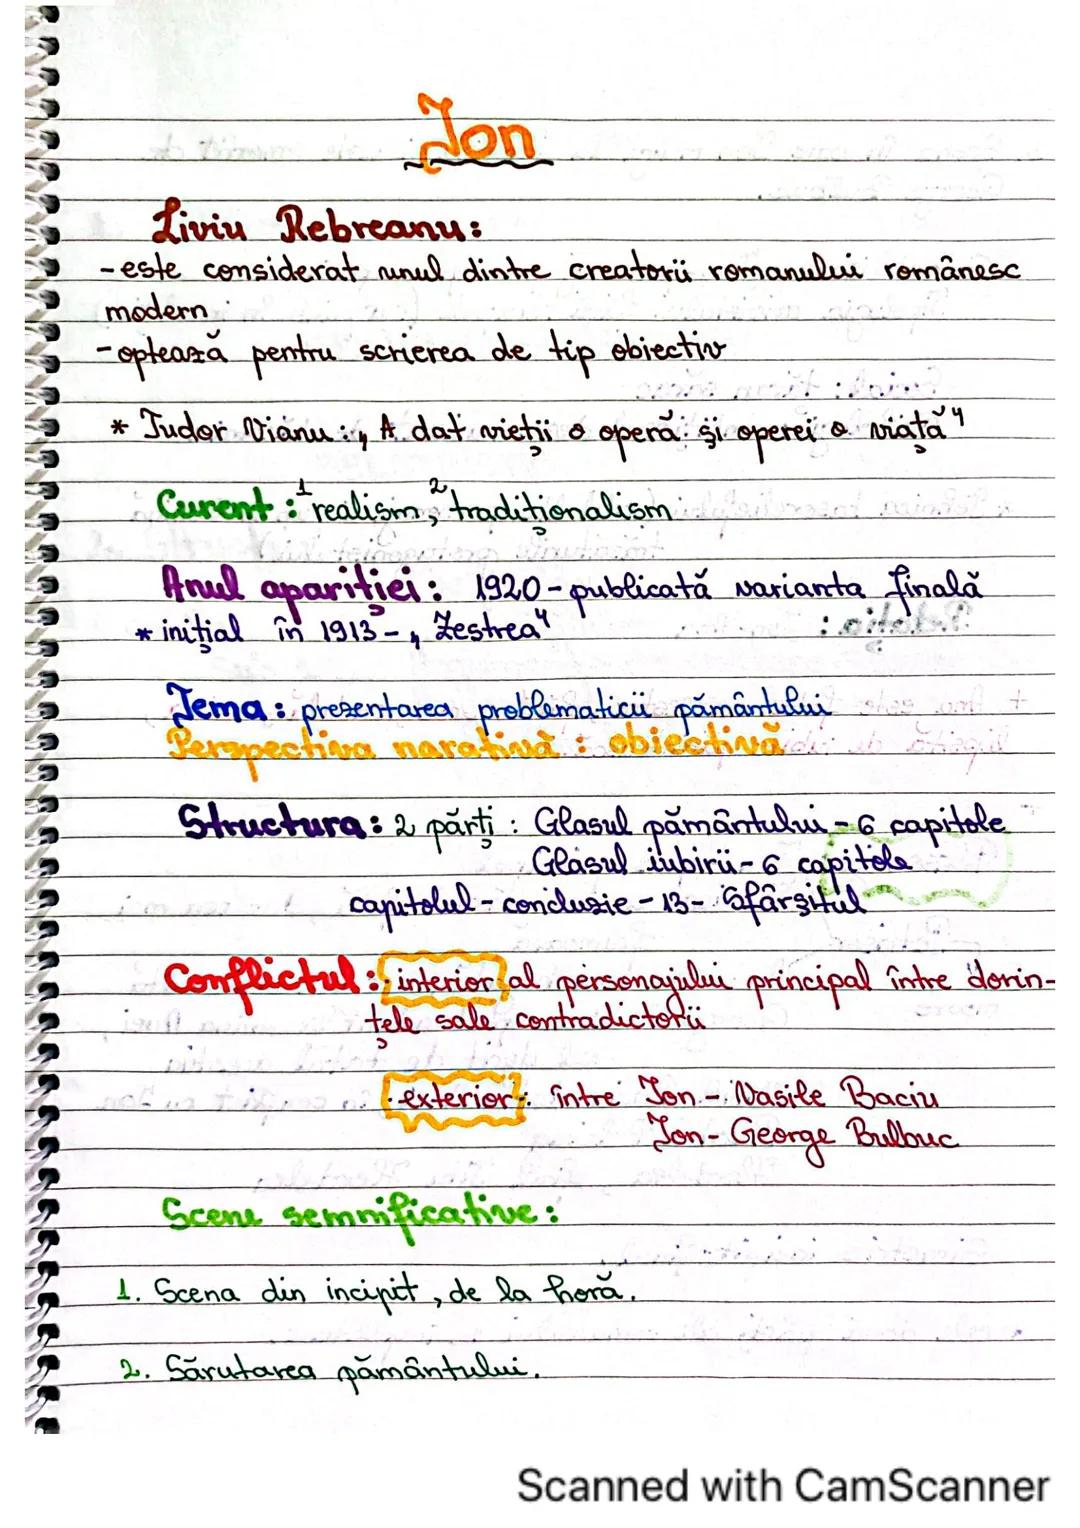 Ion
Liviu Rebreanu:
- este considerat unul dintre creatorii romanului românesc
modern
- optează pentru scrierea de tip obiectiv
* Tudor Vianu: „A dat vieții o operă și operei o viață"
Curent: ¹realism, ²tradiționalism
Anul apariției: 1920 - publicată varianta finală
* inițial în 1913 - „Zestrea"
Tema: prezentarea problematicii pământului
Perspectiva narativă: obiectivă
Structura: 2 părți: Glasul pământului - 6 capitole
Glasul iubirii - 6 capitole
capitolul - concluzie - 13 - Sfârșitul
Conflictul: interior al personajului principal între dorin-
țele sale contradictorii
exterior: între Ion - Vasile Baciu
Ion - George Bulbuc
Scene semnificative:
1. Scena din incipit, de la horă.
2. Sărutarea pământului.
Scanned with CamScanner